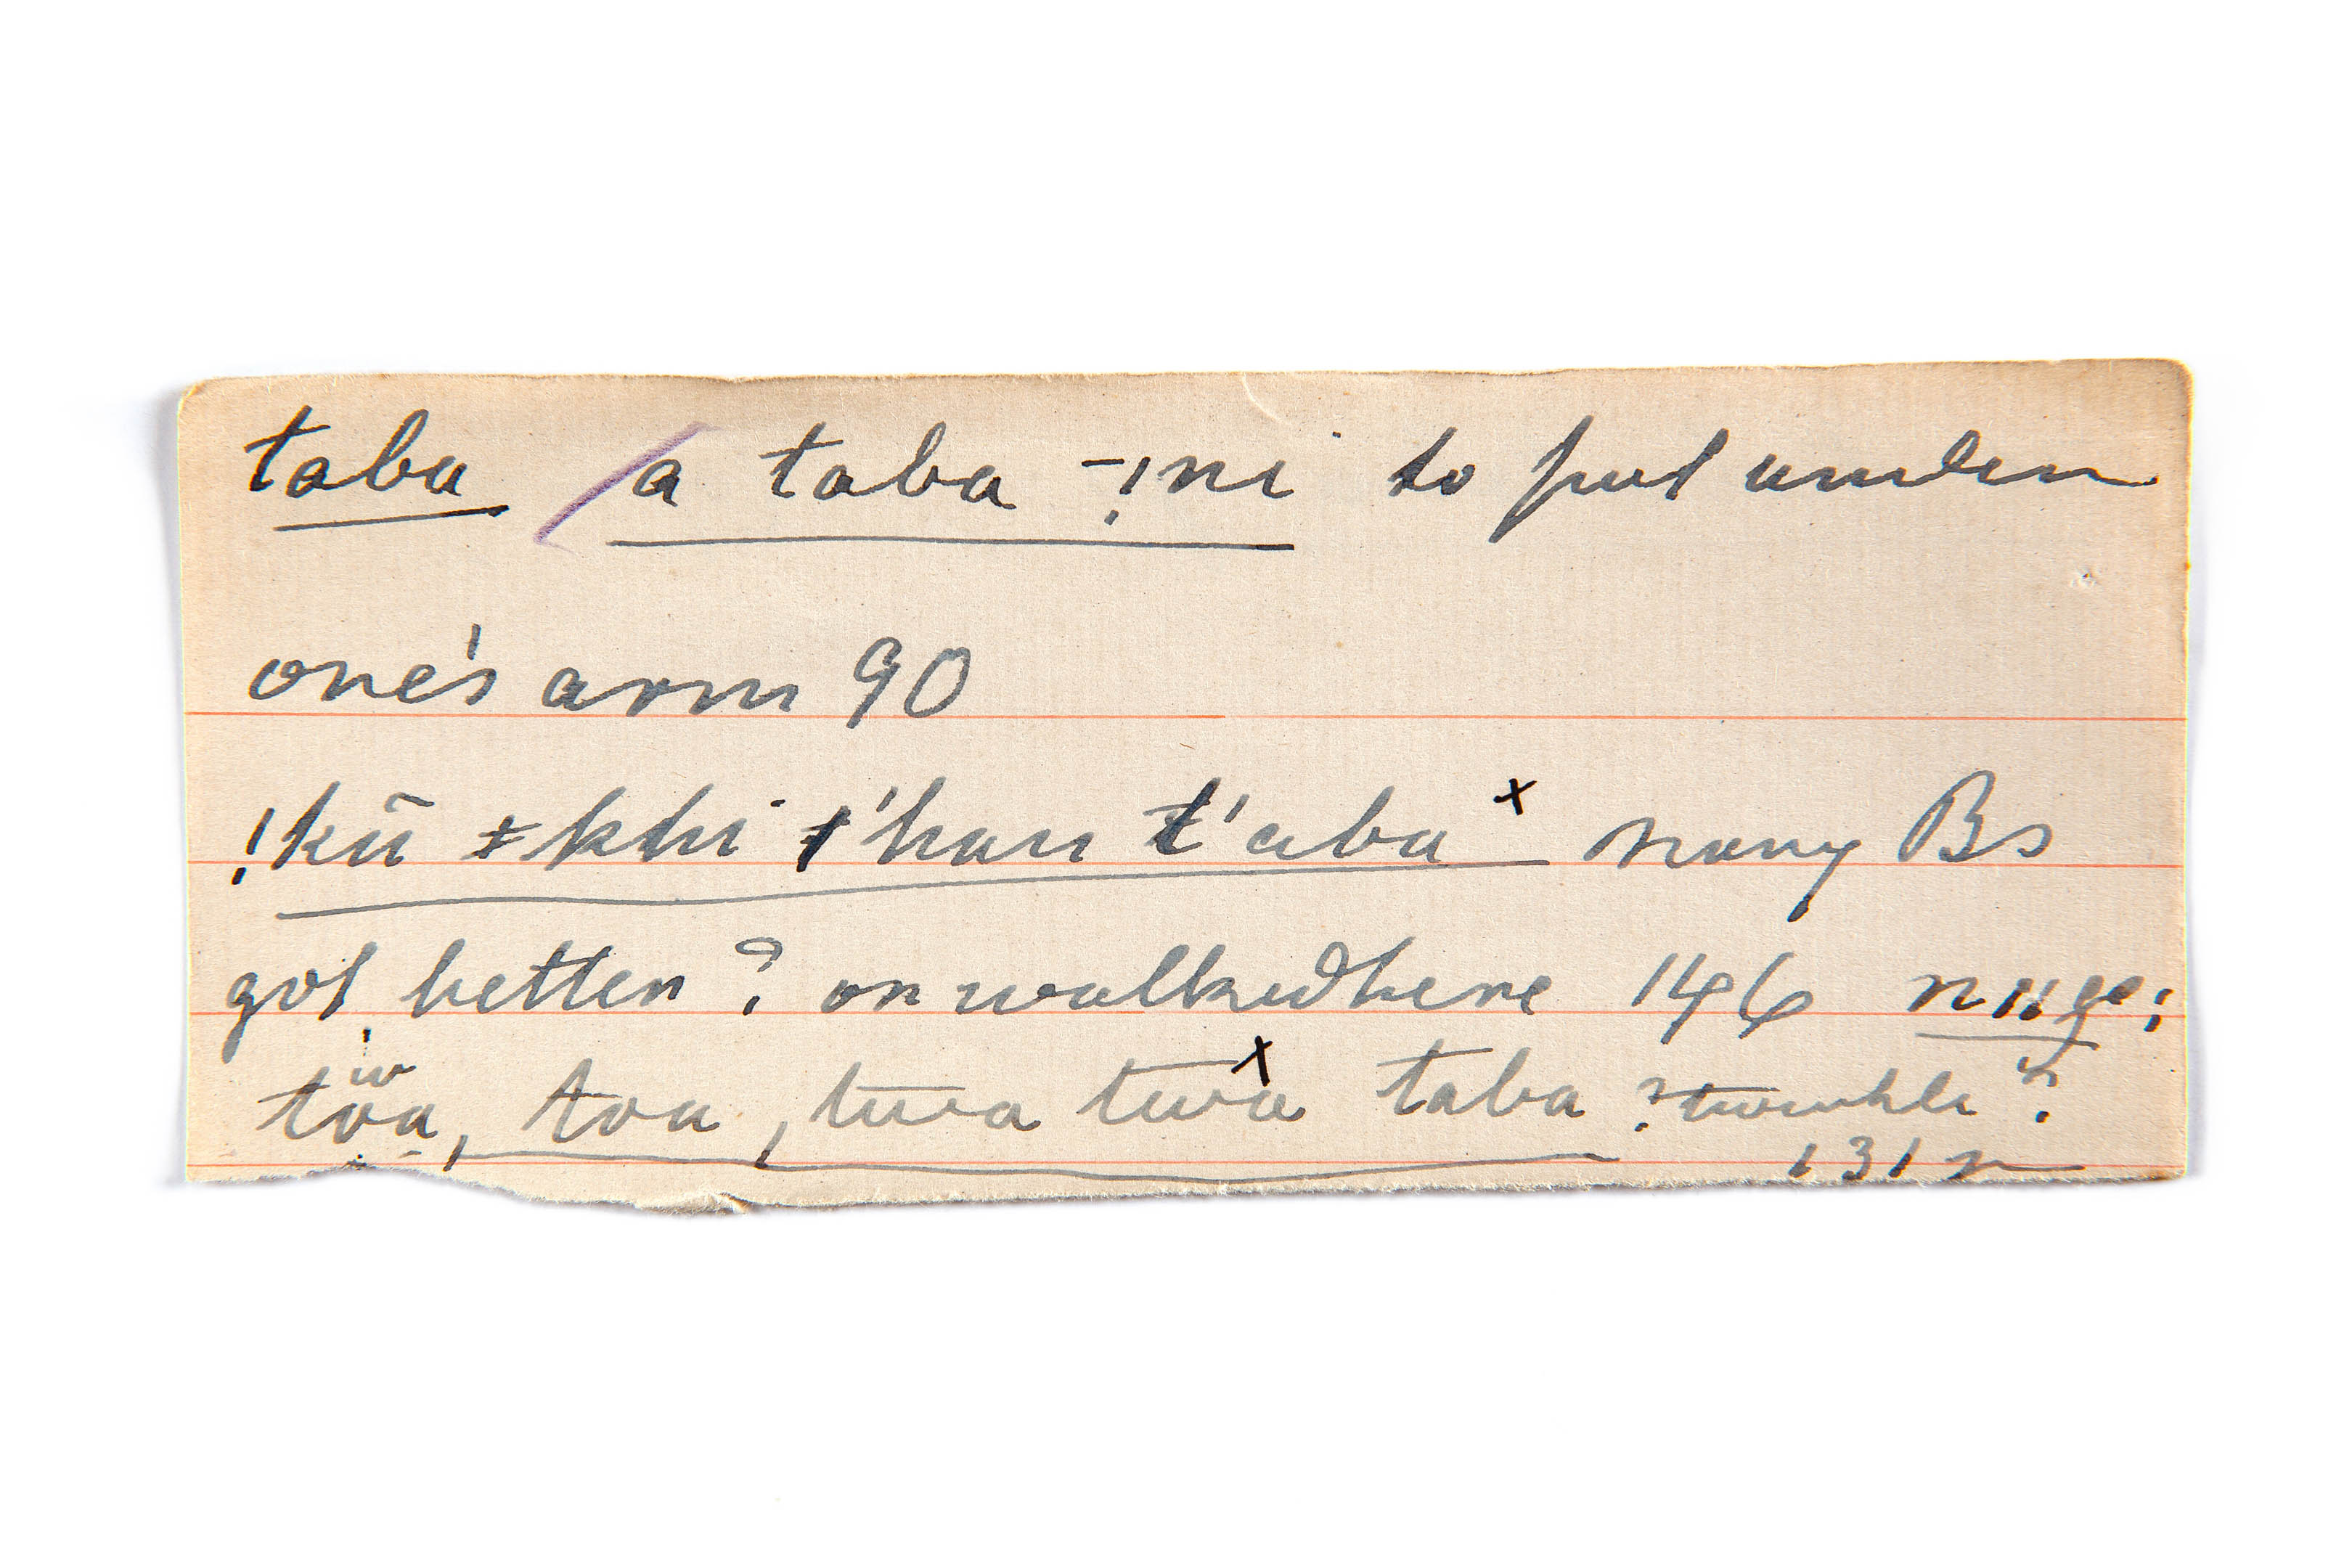 taba / a taba -!ni to put under
one's arm 90
!kū ǂkhi t'han t'aba x many Bs
got better? or walked here 146
töa, toa, twa twa taba ? twinkle ?
131